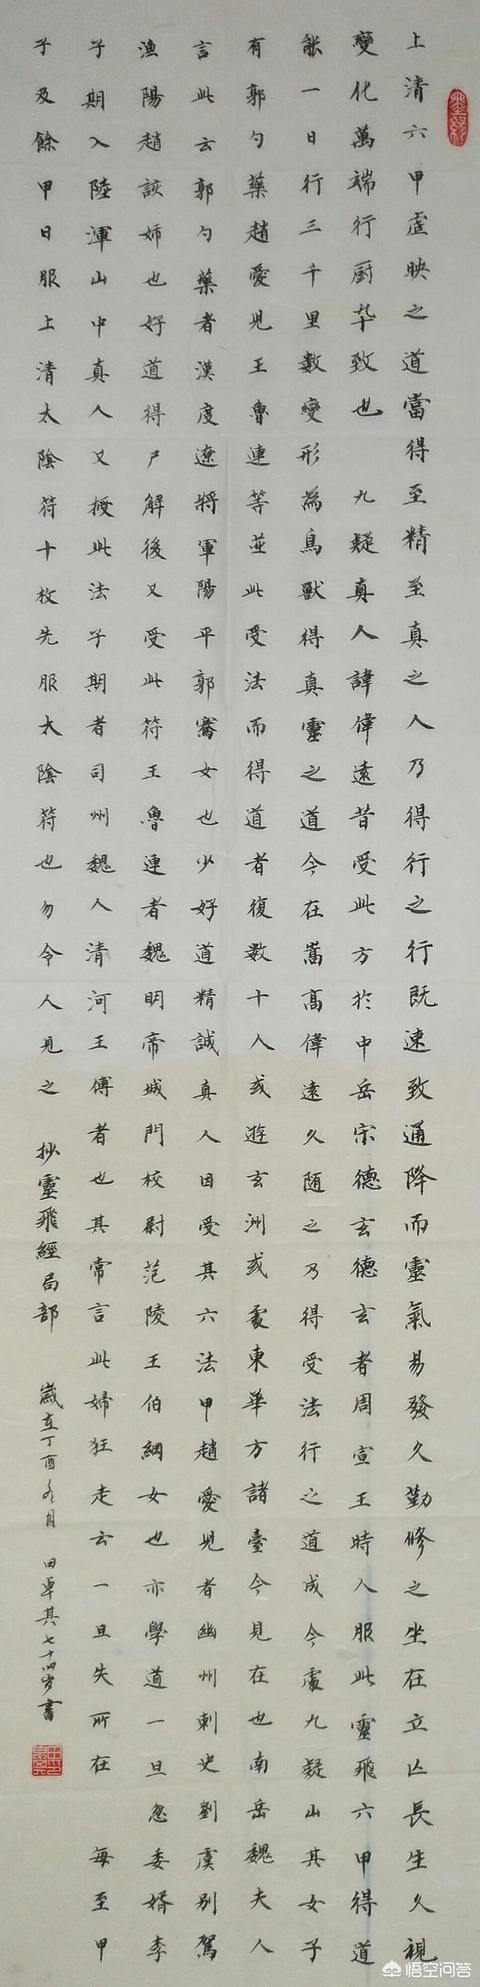 上清六甲虛映之道當得至精至真之人乃得行之行既速致通降而靈氣易發久勤修之坐在立亡長生久視
變化萬端行厨卆致也 九疑真人諱偉遠昔受此方於中岳宋德玄德玄者周宣王時人服此靈飛六甲得道
能一日行三千里數變形為鳥獸得真靈之道今在嵩高偉遠久随之乃得受法行之道成今處九疑山其女子
有郭勺藥趙愛兒王魯連等並此受法而得道者復數十人或遊玄洲或處東華方諸臺今見在也南岳魏夫人
言此云郭勺藥者漢度遼將軍陽平郭騫女也少好道精誠真人因受其六法甲趙愛兒者幽州刺史劉虞別駕
漁陽趙該姉也好道得尸解後又受此符王魯連者魏明帝城門校尉范陵王伯綱女也亦學道一旦忽委婿李
子期入陸渾山中真人又授此法子期者司州魏人清河王傅者也其常言此婦狂走云一旦失所在 每至甲
子及餘甲日服上清太陰符十枚先服太陰符也勿令人見之 抄靈飛經局部 歲在丁酉冬月 田卓其七十四岁書
悟空问答